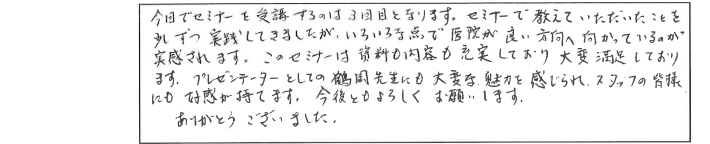 今日でセミナーを受講するのは3回目となります。セミナーで教えていただいたことを
少しずつ実践してきましたが、いろいろな点で医院が良い方向へ向かっているのが
実感されます。このセミナーは資料も内容も充実しており大変満足しており
ます。プレゼンテーターとしての鶴岡先生にも大変な魅力を感じられ、スタッフの皆様
にも好感が持てます。今後ともよろしくお願いします。
ありがとうございました。